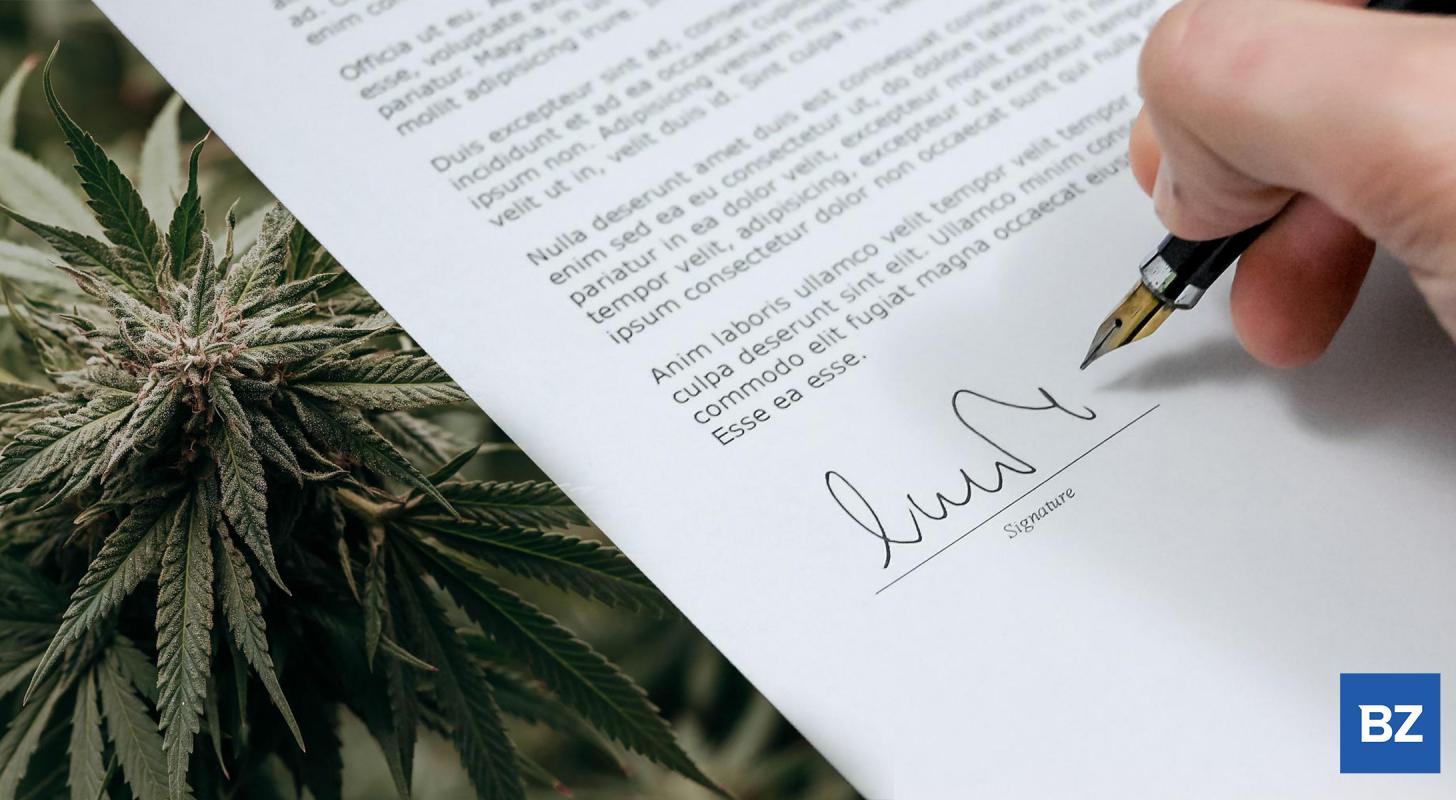 ad.
enim
Officia ut eu.
esse, voluptate
pariatur. Magna, in
mollit adipisicing irure.
Duis excepteur sint ad,
incididunt et ad ea occaecat cupidatat
ipsum non. Adipisicing veniam mollit
velit ut in, velit duis id. Sint culpa in,
Nulla deserunt amet duis est consequat
enim sed ea eu consectetur ut, do dolore laboris.
pariatur in ea dolor velit, excepteur mollit enim, in
tempor velit, adipisicing, excepteur ut excepteur
ipsum consectetur dolor non occaecat sunt qui nulla
Anim laboris ullamco velit tempor velit tempor
culpa deserunt sint elit. Ullamco minim
commodo elit fugiat magna occaecat
Esse ea esse.
Signature
BZ